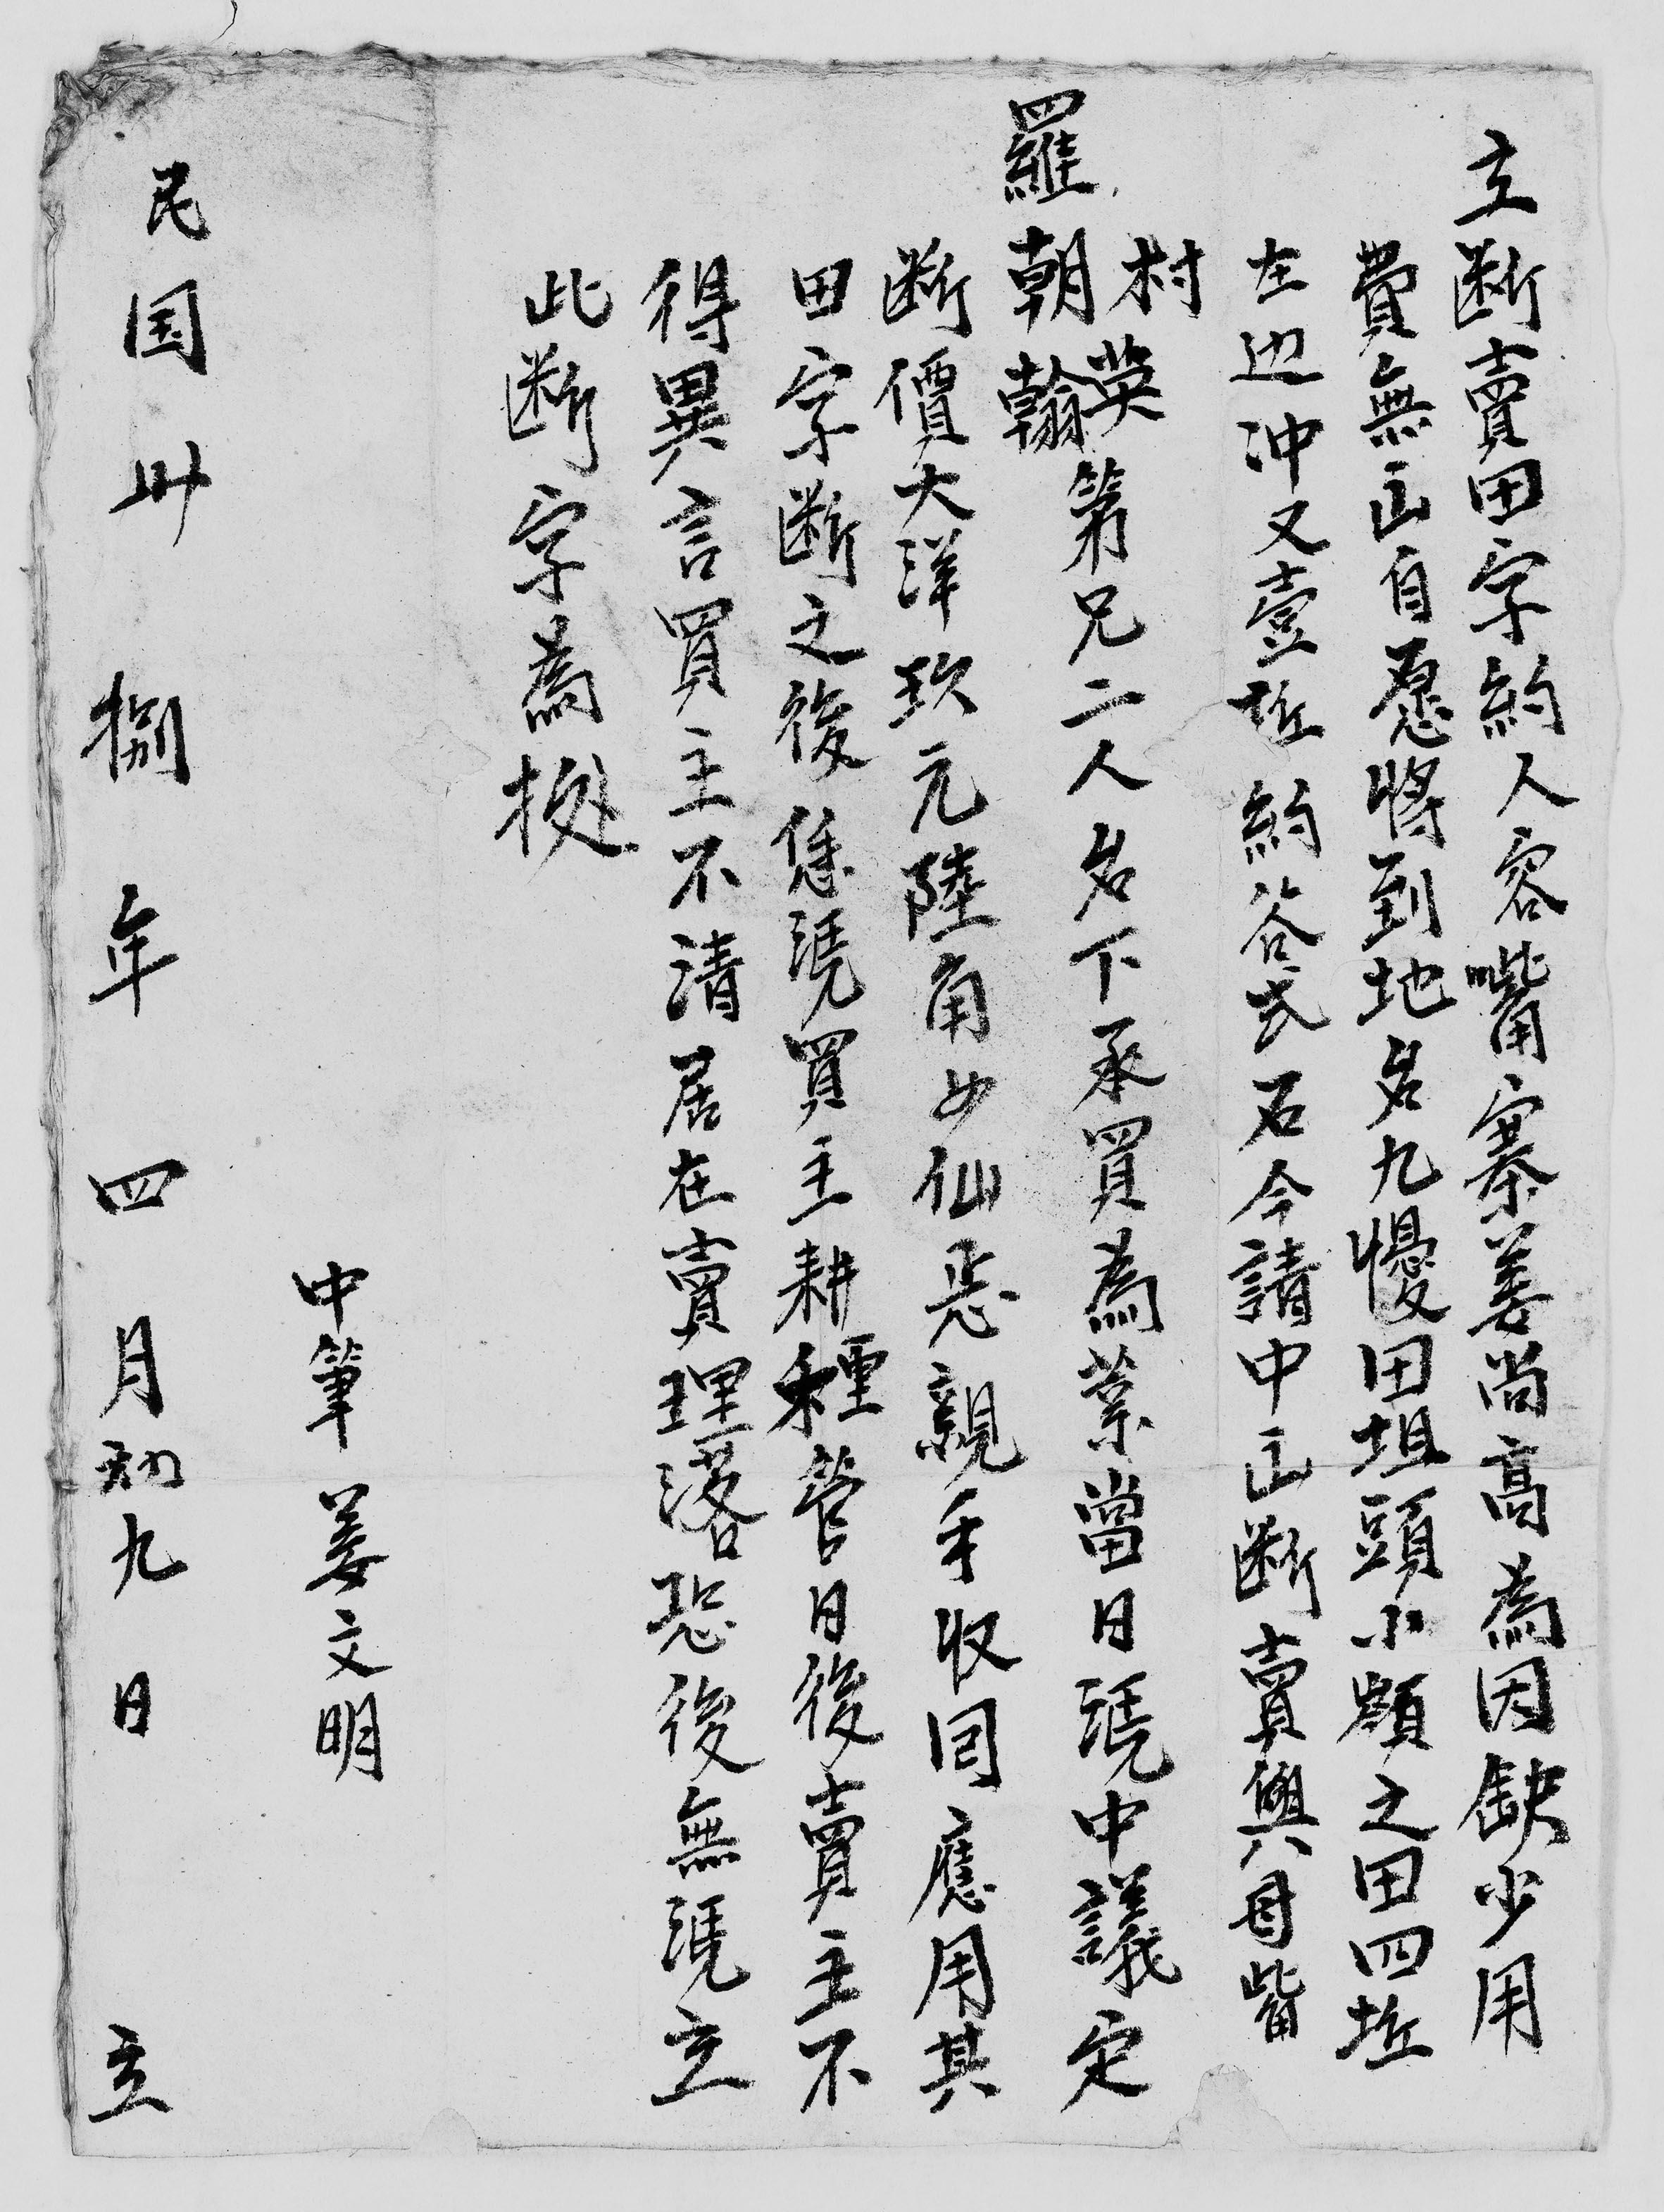 立断賣田字約人容嘴寨姜尚高為因缺少用
費無正自愿將到地名九慢田坦頭小頭之田四坵
左边冲又壹坵約谷弍石今請中正断賣與母嘴
村
羅朝英翰第兄二人名下承買為業當日憑中議定
断價大洋玖元陸角女仙忎親手收回應用其
田字断之後恁憑買主耕種管日後賣主不
得異言買主不清居在賣理落恐後無憑立
此断字為據
中筆姜文明
民国卅捌年四月初九日立